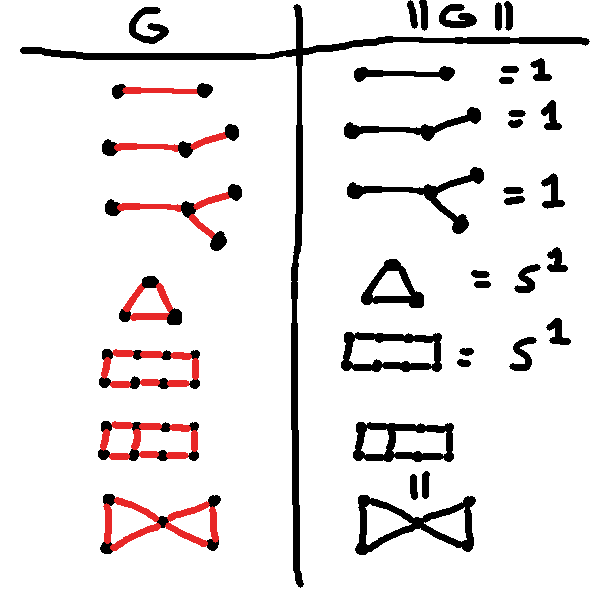 G ||G||
= 1
= 1
= 1
= S¹
= S¹
||